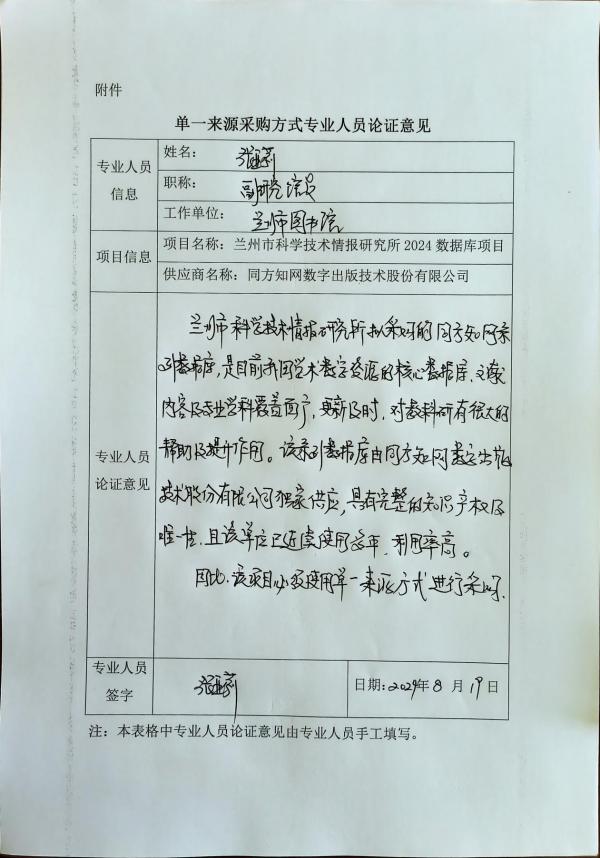 附件
单一来源采购方式专业人员论证意见
专业人员
信息
姓名：
职称：
副研究馆员
工作单位：
兰州市图书馆
项目信息
项目名称：兰州市科学技术情报研究所 2024 数据库项目
供应商名称：同方知网数字出版技术股份有限公司
专业人员
论证意见
兰州市科学技术情报研究所拟采购的同方知网系
列数据库，是目前我国学术数字资源的核心数据库，文献
内容及专业学科覆盖面广，更新及时，对教科研有很大的
帮助及提升作用。该系列数据库由同方知网数字出版
技术股份有限公司独家供应，具有完整的知识产权及
唯一性，且该单位已连续使用多年，利用率高。
因此，该项目必须使用单一来源方式进行采购。
专业人员
签字
日期：2024年 8 月 19日
注：本表格中专业人员论证意见由专业人员手工填写。